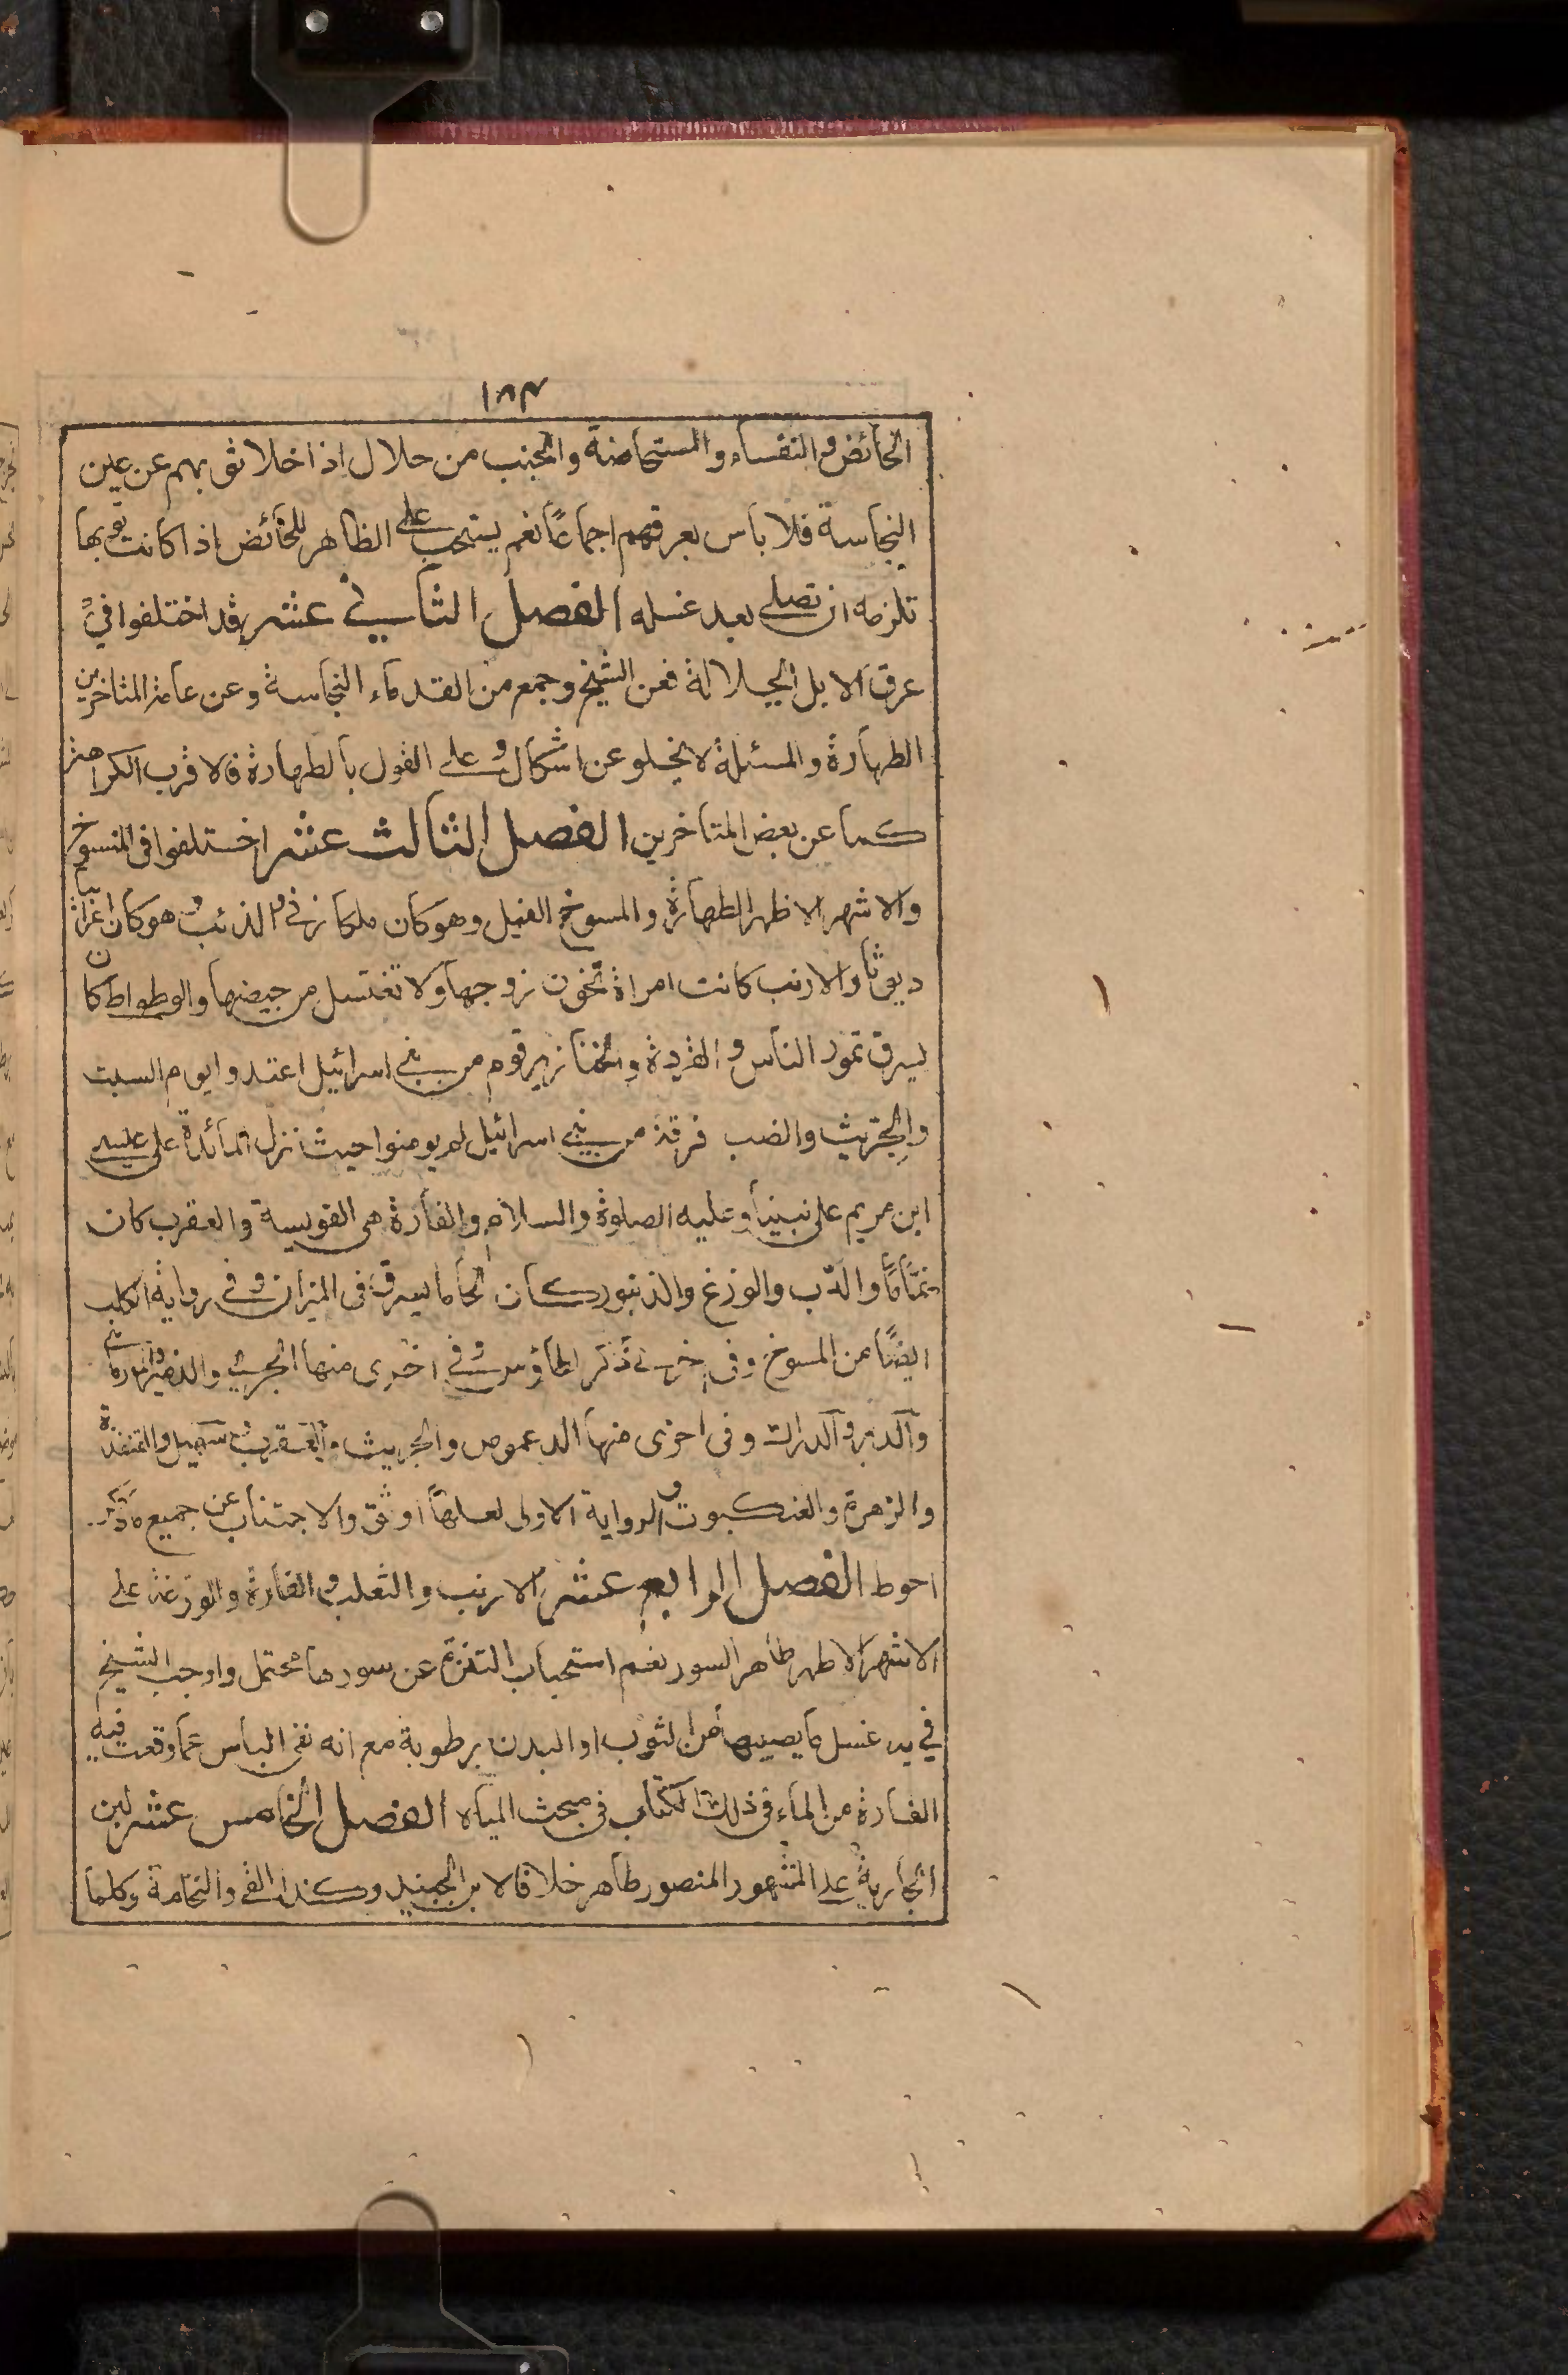 ١٨٣
الحائض والنفساء والمستحاضة والجنب من حلال اذا خلا ثوبهم عن عين
النجاسة فلا باس بعرقهم اجماعاً نعم يستحب على الظاهر للحائض اذا كانت ثوبها
تلزمه ان تصلى بعد غسله الفصل الثانى عشر قد اختلفوا في
عرق الابل الجلالة فعن الشيخ وجمع من القدماء النجاسة وعن عامة المتاخرين
الطهارة والمسئلة لا يخلو عن اشكال وعلى القول بالطهارة فالاقرب الكراهة
كما عن بعض المتاخرين الفصل الثالث عشر اختلفوا فى المسوخ
والاشهر الاظهر الطهارة والمسوخ الفيل وهو كان ملكا زنى والذئب وهو كان اعرابيا
ديوثا والارنب كانت امراة تخون زوجها ولا تغتسل من حيضها والوطواط كان
يسرق تمور الناس والقردة والخنازير قوم من بنى اسرائيل اعتدوا يوم السبت
والجريث والضب فرقة من بنى اسرائيل لم يومنوا حيث نزل المائدة على عيسى
ابن مريم على نبينا وعليه الصلوة والسلام والفارة هى الفويسة والعقرب كان
نماما والدب والوزغ والزنبور كان لحاما يسرق فى الميزان وفى رواية الكلب
ايضًا من المسوخ وفى اخرى ذكر الطاؤس وفى اخرى منها الجرى
والدبر وفى اخرى منها الدعموص والجريث والعقرب وسهيل والقنفذة
والزهرة والعنكبوت والرواية الاولى لعلها اوثق والاجتناب عن جميع ما ذكر
احوط الفصل الرابع عشر الارنب والثعلب والفارة والوزغة على
الاشهر الاظهر طاهر السور نعم استحباب التنزه عن سورها محتمل واوجب الشيخ
في يه غسل ما يصيبها من الثوب او البدن برطوبة مع انه نفى الباس عما وقعت فيه
الفارة من الماء فى ذلك الكتاب فى مبحث المياه الفصل الخامس عشر لبن
الجارية على المشهور المنصور طاهر خلافا لابن الجنيد وكذا القى والنخامة وكلما